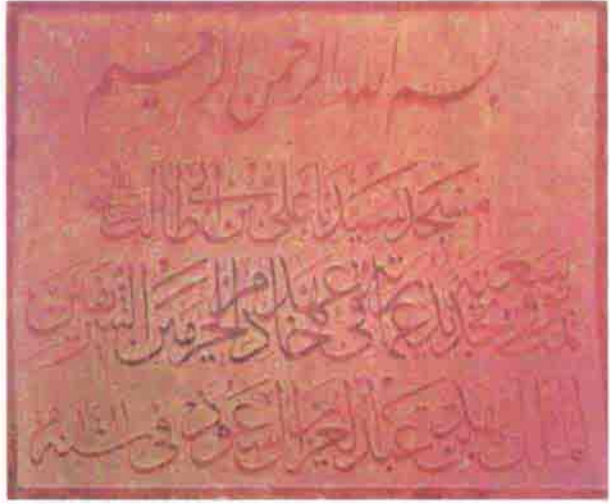 بسم الله الرحمن الرحيم
مسجد سيدنا علي بن أبي طالب
تمت توسعته وتجديد عمارته في عهد خادم الحرمين الشريفين
الملك فهد بن عبد العزيز آل سعود في سنة ١٤١١ هـ